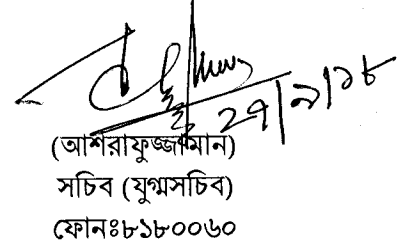 ২৭/৯/১৮
(আশরাফুজ্জামান)
সচিব (যুগ্মসচিব)
ফোনঃ৮১৮০০৬০